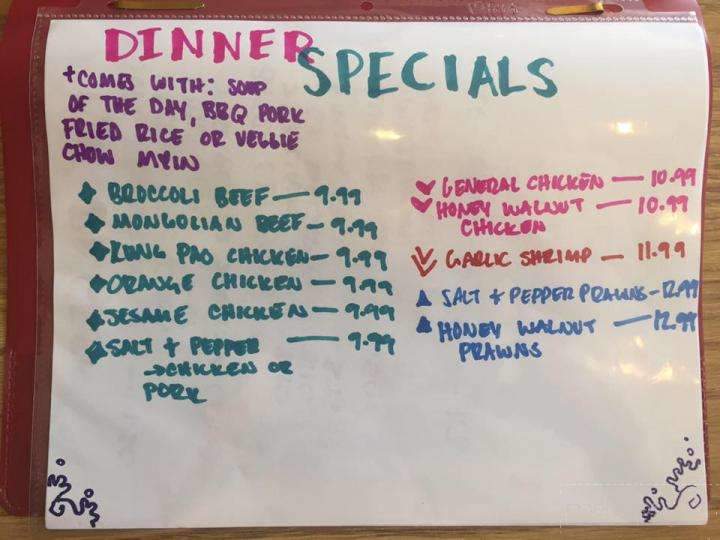 DINNER
SPECIALS
+COMES WITH: SOUP
OF THE DAY, BBQ PORK
FRIED RICE OR VEGGIE
CHOW MEIN
BROCCOLI BEEF — 9.99
MONGOLIAN BEEF — 9.99
KUNG PAO CHICKEN — 9.99
ORANGE CHICKEN — 9.99
SESAME CHICKEN — 9.99
SALT + PEPPER — 9.99
→CHICKEN OR
PORK
GENERAL CHICKEN — 10.99
HONEY WALNUT — 10.99
CHICKEN
GARLIC SHRIMP — 11.99
SALT + PEPPER PRAWNS — 12.99
HONEY WALNUT — 12.99
PRAWNS